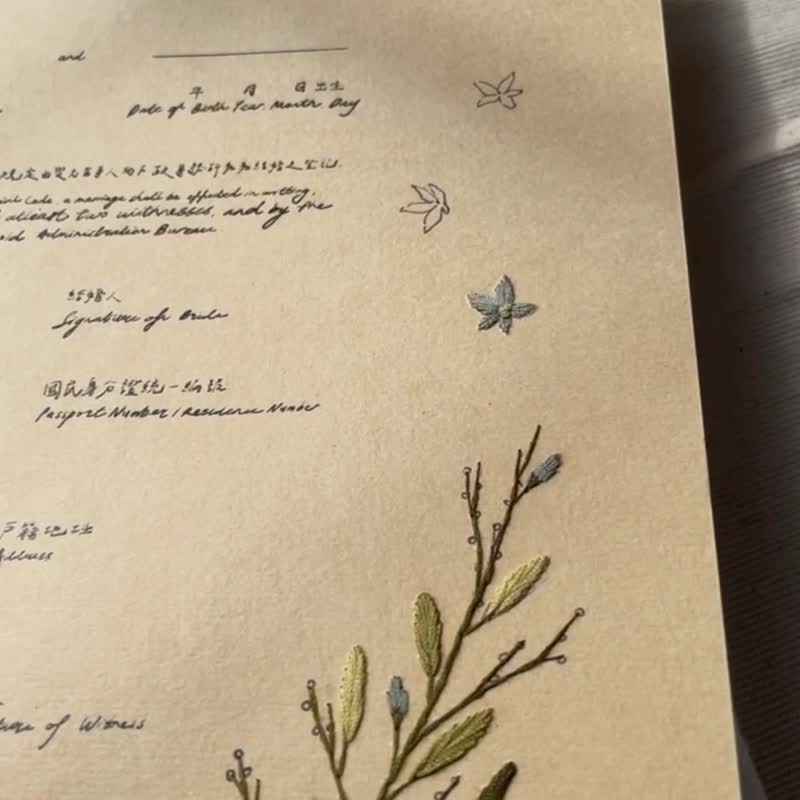 and
年 月 日出生
Date of Birth Year Month Day
a marriage shall be effected in writing,
atleast two witnesses, and by the
Administration Bureau
結婚人
Signature of Bride
國民身分證統一編號
Passport Number / Residence Number
戶籍地址
Address
of Witness